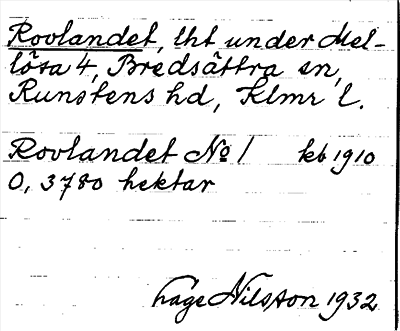 Rovlandet, lht under Mel-
lösa 4, Bredsättra sn,
Runstens hd, Klmr l.
Rovlandet No 1 kb 1910
0,3780 hektar
Hage Nilsson 1932